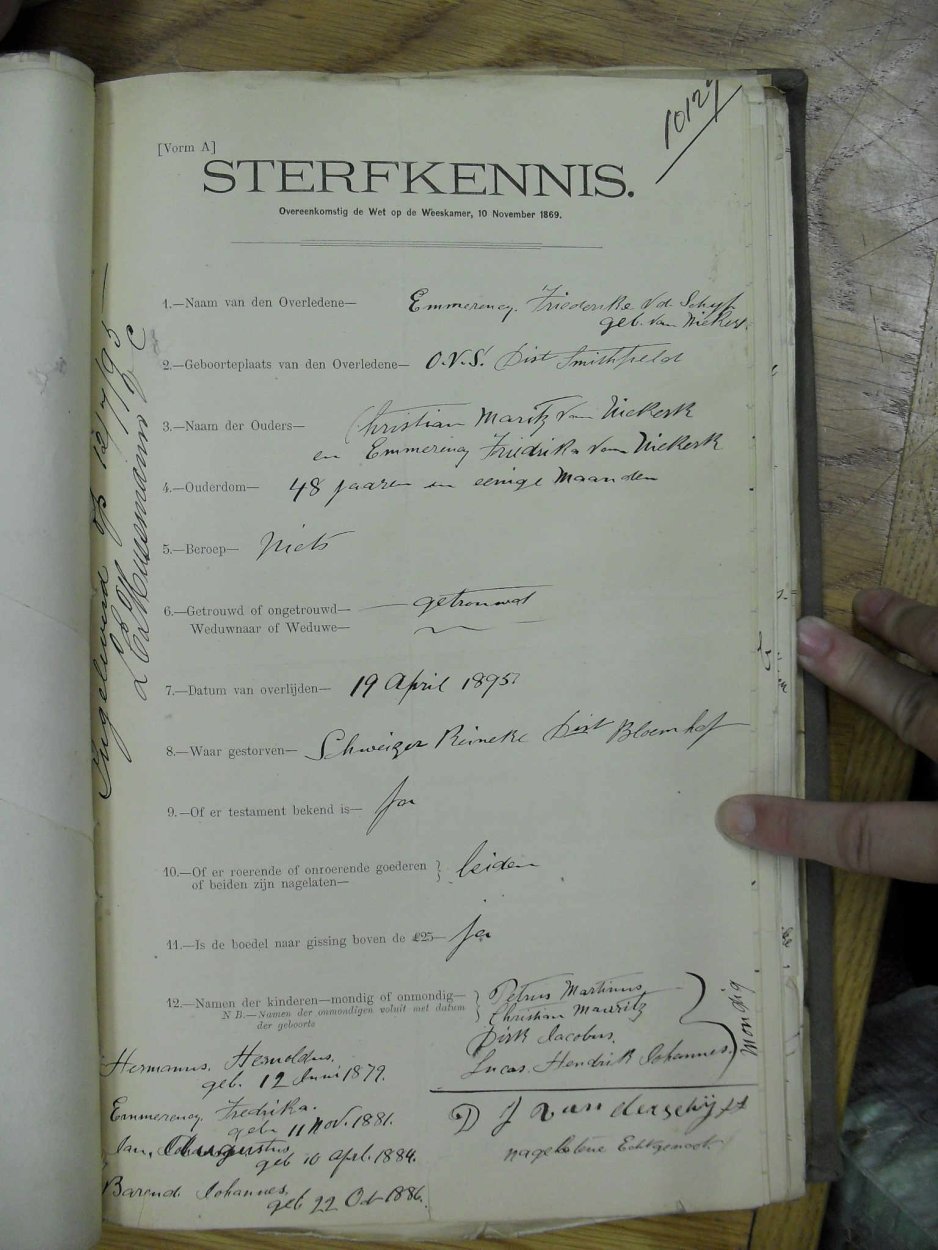 10127
[Vorm A]
STERFKENNIS.
Overeenkomstig de Wet op de Weeskamer, 10 November 1869.
1.—Naam van den Overledene— Emmerency Frederike v.d. Schyf
geb. van Niekerk
2.—Geboorteplaats van den Overledene— O.V.S. Dist Smithfield
3.—Naam der Ouders— Christian Maritz van Niekerk
en Emmerency Friedrika van Niekerk
4.—Ouderdom— 48 jaaren en eenige Maanden
5.—Beroep— Niets
6.—Getrouwd of ongetrouwd— getrouwd
Weduwnaar of Weduwe—
7.—Datum van overlijden— 19 April 1895
8.—Waar gestorven— Schweizer Reineke Dist Bloemhof
9.—Of er testament bekend is— Ja
10.—Of er roerende of onroerende goederen
of beiden zijn nagelaten— beiden
11.—Is de boedel naar gissing boven de £25— Ja
12.—Namen der kinderen—mondig of onmondig—
N B.—Namen der onmondigen voluit met datum
der geboorte
Petrus Martinus
Christian Mauritz
Dirk Jacobus
Lucas Hendrik Johannes.
Mondig
Hermanus Hernoldus.
geb. 12 Juni 1879.
Emmerency Fredrika.
geb 11 Nov. 1881.
Jan Augustus
geb 10 Apl. 1884.
Barend Johannes
geb 22 Oct 1886.
D J van der schijff
nagelatene Echtgenoot
Ingeleverd op 12/7/95